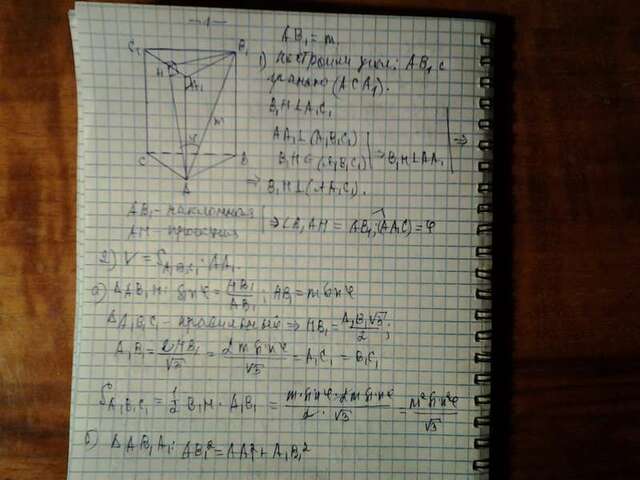 — 1 —
C₁ B₁
H A₁
φ m
C B
A
AB₁ = m.
1) построим угол: AB₁ с
гранью (ACA₁).
B₁H ⊥ A₁C₁
AA₁ ⊥ (A₁B₁C₁)
B₁H ∈ (A₁B₁C₁) | ⇒ B₁H ⊥ AA₁ | ⇒
⇒ B₁H ⊥ (AA₁C₁).
AB₁ - наклонная
AH - проекция | ⇒ ∠B₁AH = (AB₁; (AA₁C)) = φ
2) V = S A₁B₁C₁ · AA₁
а) ΔAB₁H: sin φ = HB₁/AB₁; HB₁ = m sin φ
ΔA₁B₁C₁ - правильный ⇒ HB₁ = A₁B₁√3/2;
A₁B₁ = 2HB₁/√3 = 2m sin φ/√3 = A₁C₁ = B₁C₁
S A₁B₁C₁ = 1/2 B₁H · A₁B₁ = m·sin φ·2m sin φ/2·√3 = m² sin² φ/√3
б) ΔAB₁A₁: AB₁² = AA₁² + A₁B₁²